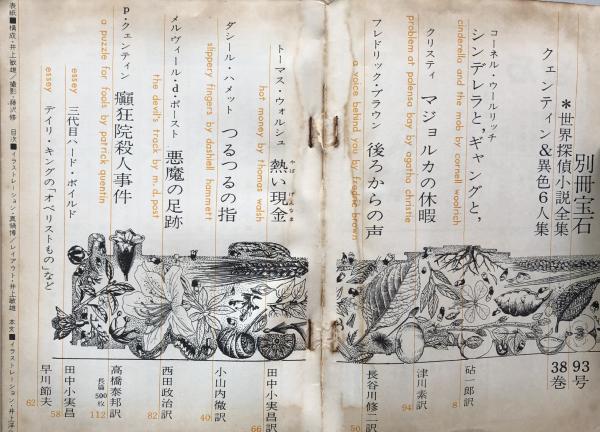 別冊宝石
93号
*世界探偵小説全集
38巻
クェンティン&異色6人集
コーネル・ウールリッチ
シンデレラと,ギャングと,
cinderella and the mob by cornell woolrich
砧一郎訳
8
クリスティ
マジョルカの休暇
problem at polensa bay by agatha christie
津川素訳
94
フレドリック・ブラウン
後ろからの声
a voice behind you by fredric brown
長谷川修二訳
50
トーマス・ウォルシュ
熱い現金
やばいげんなま
hot money by thomas walsh
田中小実訳
66
ダシール・ハメット
つるつるの指
slippery fingers by dashell hammett
小山内徹訳
40
メルヴィール・d・ポースト
悪魔の足跡
the devil's track by m.d.post
西田政治訳
82
p・クェンティン
癲狂院殺人事件
a puzzle for fools by patrick quentin
高橋泰邦訳
長篇500枚
112
essey
三代目ハード・ボイルド
田中小実昌
58
essey
デイリ・キングの「オベリストもの」など
早川節夫
62
表紙■構成・井上敏雄/撮影・藤沢修
目次■イラストレーション・真鍋博/レイアウト・井上敏雄
本文■イラストレーション・井上洋